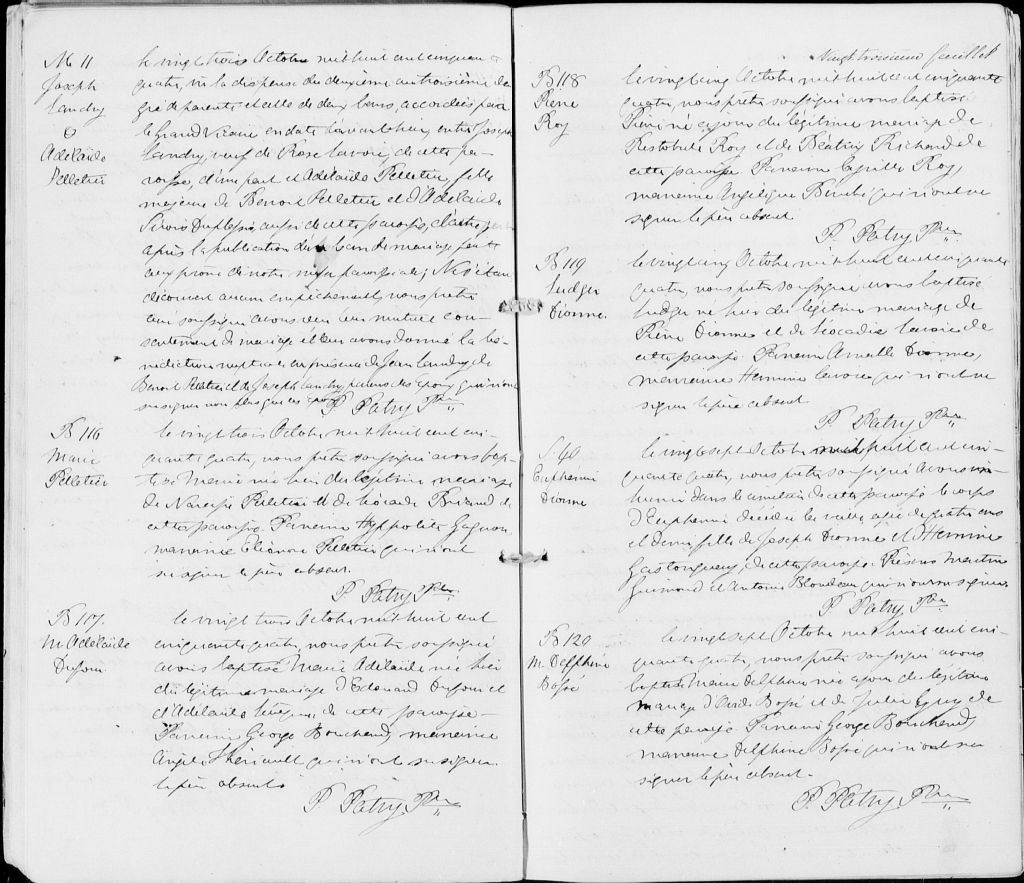 M 11
Joseph
Landry
&
Adelaïde
Pelletier
le vingt trois Octobre mil huit cent cinquante
quatre, vu la dispense du deuxième au troisième de
gré de parenté et celle de deux bans, accordées par
le Grand Vicaire en date entre Joseph
Landry, veuf de Rose Lavoie, de cette pa-
roisse, d'une part et Adelaïde Pelletier, fille
majeure de Benoit Pelletier et d'Adelaïde
Sirois Duplessis aussi de cette paroisse, d'autre part
après la publication d'un ban de mariage faite
au prone de notre messe paroissiale; Ne s'étant
découvert aucun empêchement, nous prêtre
curé soussigné avons reçu leur mutuel con-
sentement de mariage et leur avons donné la bé-
nédiction nuptiale en présence de Jean Landry, de
Benoit Pelletier et de Joseph Landry, parents des époux, qui n'ont
su signer non plus que les époux
P. Patry Ptre
B 116
Marie
Pelletier
le vingt trois Octobre mil huit cent cin-
quante quatre, nous prêtre soussigné avons bap-
tisé Marie née hier du légitime mariage
de Narcisse Pelletier et de Léocade Briand de
cette paroisse. Parrain Hyppolite Gagnon,
marraine Eléonore Pelletier qui n'ont
su signer le père absent.
P. Patry Ptre
B 117
M. Adelaïde
Dufour
le vingt trois Octobre mil huit cent
cinquante quatre, nous prêtre soussigné
avons baptisé Marie Adelaïde née hier
du légitime mariage d'Edouard Dufour et
d'Adelaïde de cette paroisse
Parrain George Bouchard, marraine
Angèle Thériault qui n'ont su signer
le père absent
P. Patry Ptre
Vingt troisième feuillet
B 118
Pierre
Roy
le vingt cinq Octobre mil huit cent cinquante
quatre, nous prêtre soussigné avons baptisé
Pierre né ce jour du légitime mariage de
Roy et de Béatrix Richard de
cette paroisse Parrain Roy,
marraine Angélique qui n'ont su
signer le père absent
P. Patry Ptre
B 119
Ludger
Dionne
le vingt cinq Octobre mil huit cent cinquante
quatre, nous prêtre soussigné avons baptisé
Ludger né hier du légitime mariage de
Pierre Dionne et de Léocadie Lavoie de
cette paroisse. Parrain Dionne,
marraine Lavoie qui n'ont su
signer le père absent
P. Patry Ptre
S. 40
Euphémie
Dionne
le vingt sept Octobre mil huit cent cin-
quante quatre, nous prêtre soussigné avons in-
humé dans le cimetière de cette paroisse le corps
d'Euphémie décédée agée de quatre ans
et demi fille de Joseph Dionne et d'
Gastonguay, de cette paroisse. Présens
Guimond et Antoine Blondeau qui n'ont su signer
P. Patry Ptre
B 120
M. Delphine
Bossé
le vingt sept Octobre mil huit cent cin-
quante quatre, nous prêtre soussigné avons
baptisé Marie Delphine née ce jour du légitime
mariage d' Bossé et de Julie Guy de
cette paroisse Parrain George Bouchard,
marraine Delphine Bossé qui n'ont su
signer le père absent.
P. Patry Ptre